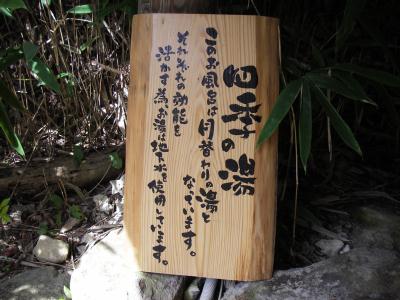 四季の湯
このお風呂は月替わりの湯と
なっています。
それぞれの効能を
活かす為、お湯は地下水を使用しています。